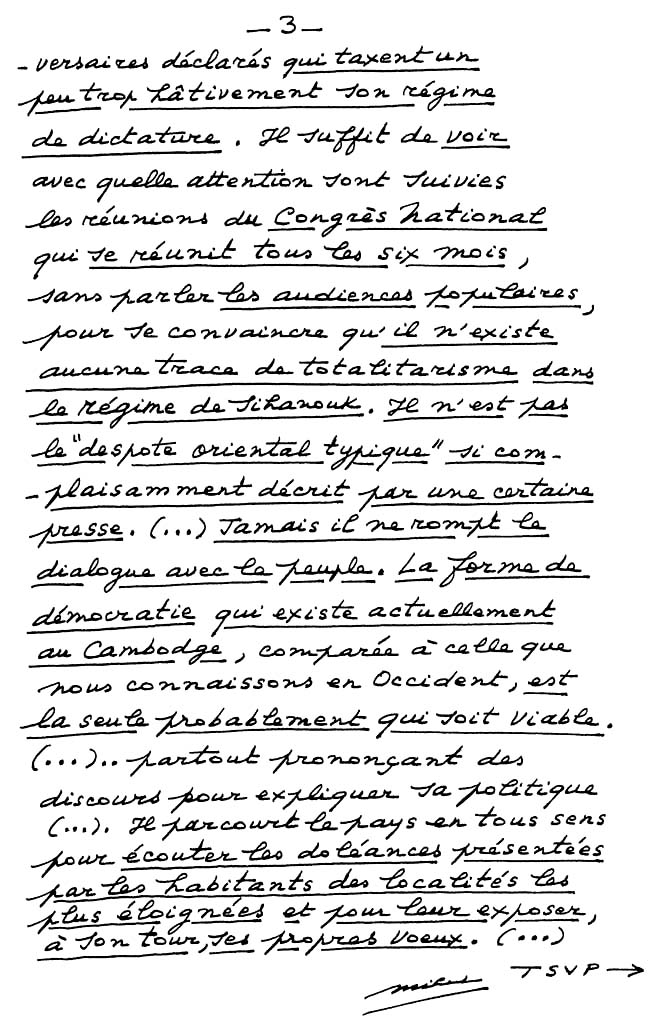 - 3 -
- versaires déclarés qui taxent un
peu trop hâtivement son régime
de dictature. Il suffit de voir
avec quelle attention sont suivies
les réunions du Congrès National
qui se réunit tous les six mois,
sans parler les audiences populaires,
pour se convaincre qu'il n'existe
aucune trace de totalitarisme dans
le régime de Sihanouk. Il n'est pas
le "despote oriental typique" si com-
- plaisamment décrit par une certaine
presse. (...) Jamais il ne rompt le
dialogue avec le peuple. La forme de
démocratie qui existe actuellement
au Cambodge, comparée à celle que
nous connaissons en Occident, est
la seule probablement qui soit viable.
(...).. partout prononçant des
discours pour expliquer sa politique
(...). Il parcourt le pays en tous sens
pour écouter les doléances présentées
par les habitants des localités les
plus éloignées et pour leur exposer,
à son tour, ses propres voeux. (...)
TSVP →